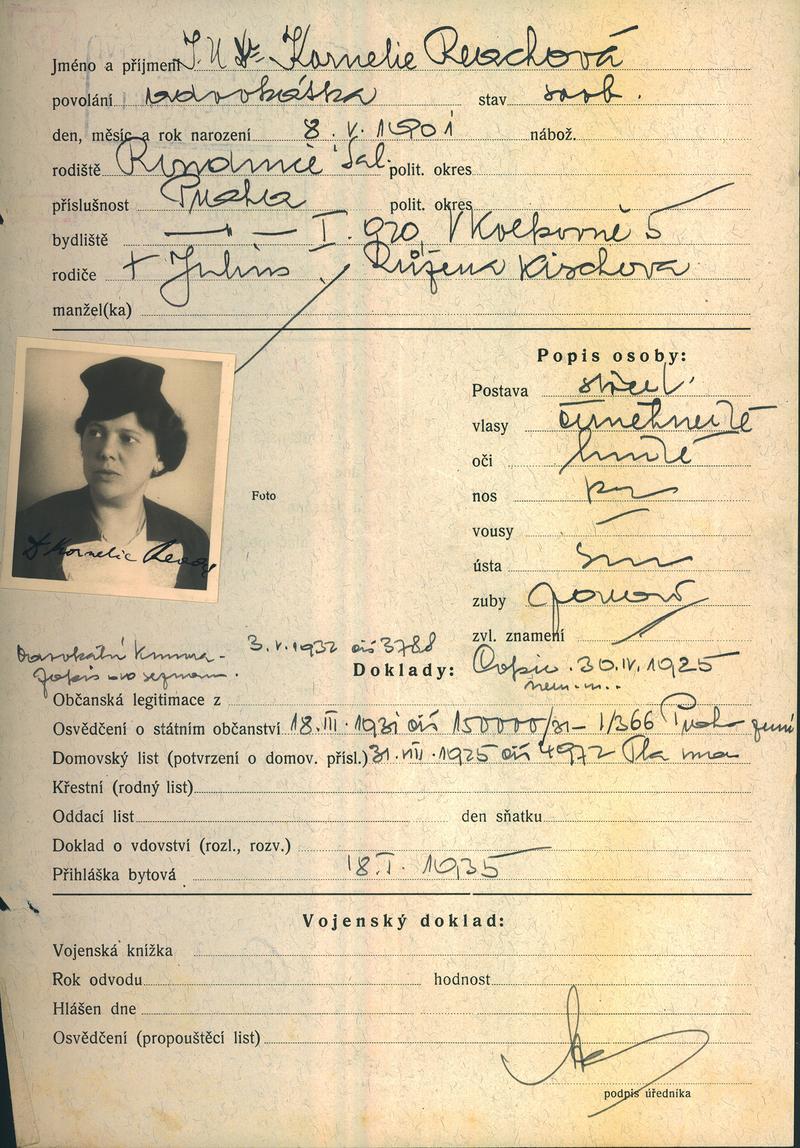 Jméno a příjmení J.U.Dr. Kornelie
povolání advokátka stav svob.
den, měsíc a rok narození 8. V. 1901 nábož.
rodiště polit. okres
příslušnost Praha polit. okres
bydliště — " — I. 920, V Kolkovně 5
rodiče + Julius, Růžena Kischova
manžel(ka)
Popis osoby:
Postava střed.
vlasy
oči hnědé
nos
vousy —
ústa
zuby
zvl. znamení
Foto
Dr Kornelie
Advokátní komora -
zápis do seznam.
3.V.1932 čís 3788
Doklady:
30.IV.1925
Občanská legitimace z
Osvědčení o státním občanství 18.III.1931 čís 150000/31 - 1/366 Praha
Domovský list (potvrzení o domov. přísl.) 31.VII.1925 čís 4972
Křestní (rodný list)
Oddací list den sňatku
Doklad o vdovství (rozl., rozv.)
Přihláška bytová 18.I.1935
Vojenský doklad:
Vojenská knížka
Rok odvodu hodnost
Hlášen dne
Osvědčení (propouštěcí list)
podpis úředníka